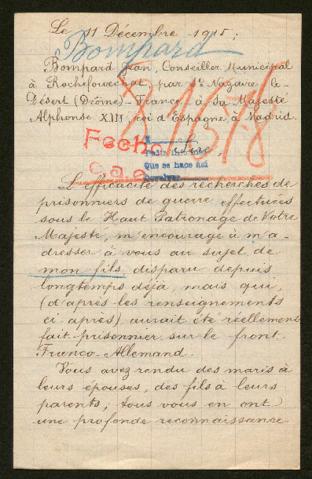 Le 11 Décembre 1915;
Bompard
Bompard Jean, Conseiller Municipal
à Rochefourchat, par St Nazaire le
Désert (Drôme) - France, à sa Majesté
Alphonse XIII, roi d'Espagne, à Madrid.
Fecho
Que se hace así
L'efficacité des recherches de
prisonniers de guerre effectuées
sous le Haut Patronage de Votre
Majesté, m'encourage à m'a-
dresser à vous au sujet de
mon fils, disparu depuis
longtemps déjà, mais qui
(d'après les renseignements
ci après) aurait été réellement
fait prisonnier sur le front
Franco-Allemand.
Vous avez rendu des maris à
leurs épouses, des fils à leurs
parents; tous vous en ont
une profonde reconnaissance